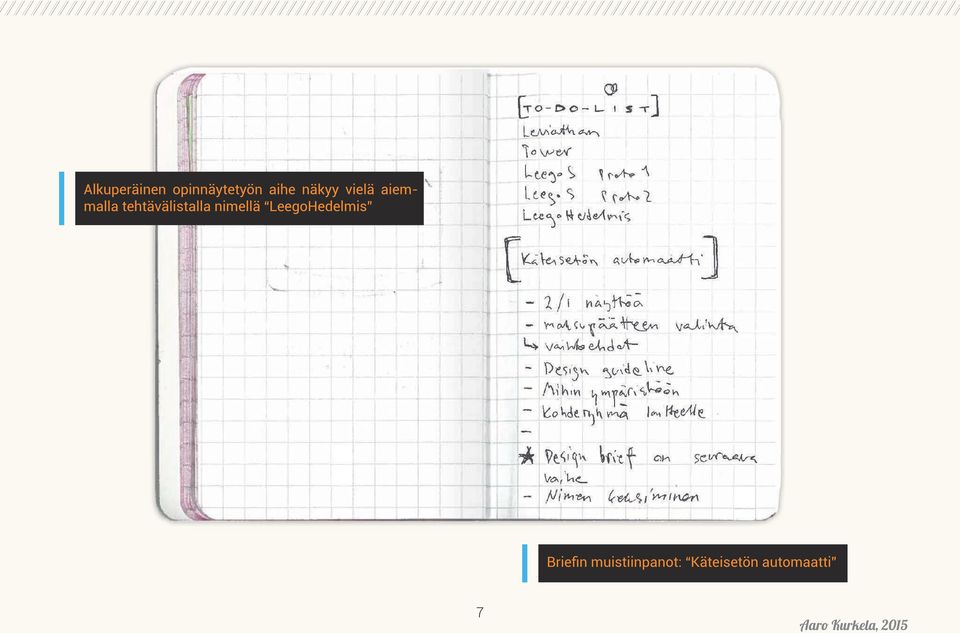 Alkuperäinen opinnäytetyön aihe näkyy vielä aiem-
malla tehtävälistalla nimellä “LeegoHedelmis”
[TO-DO-LIST]
Leviathan
Tower
LeegoS Proto 1
LeegoS Proto 2
LeegoHedelmis
[Käteisetön automaatti]
- 2/1 näyttöä
- maksupäätteen valinta
↳ vaihtoehdot
- Design guideline
- Mihin ympäristöön
- Kohderyhmä laitteelle
-
★ Design brief on seuraava
vaihe
- Nimen keksiminen
Briefin muistiinpanot: “Käteisetön automaatti”
7
Aaro Kurkela, 2015